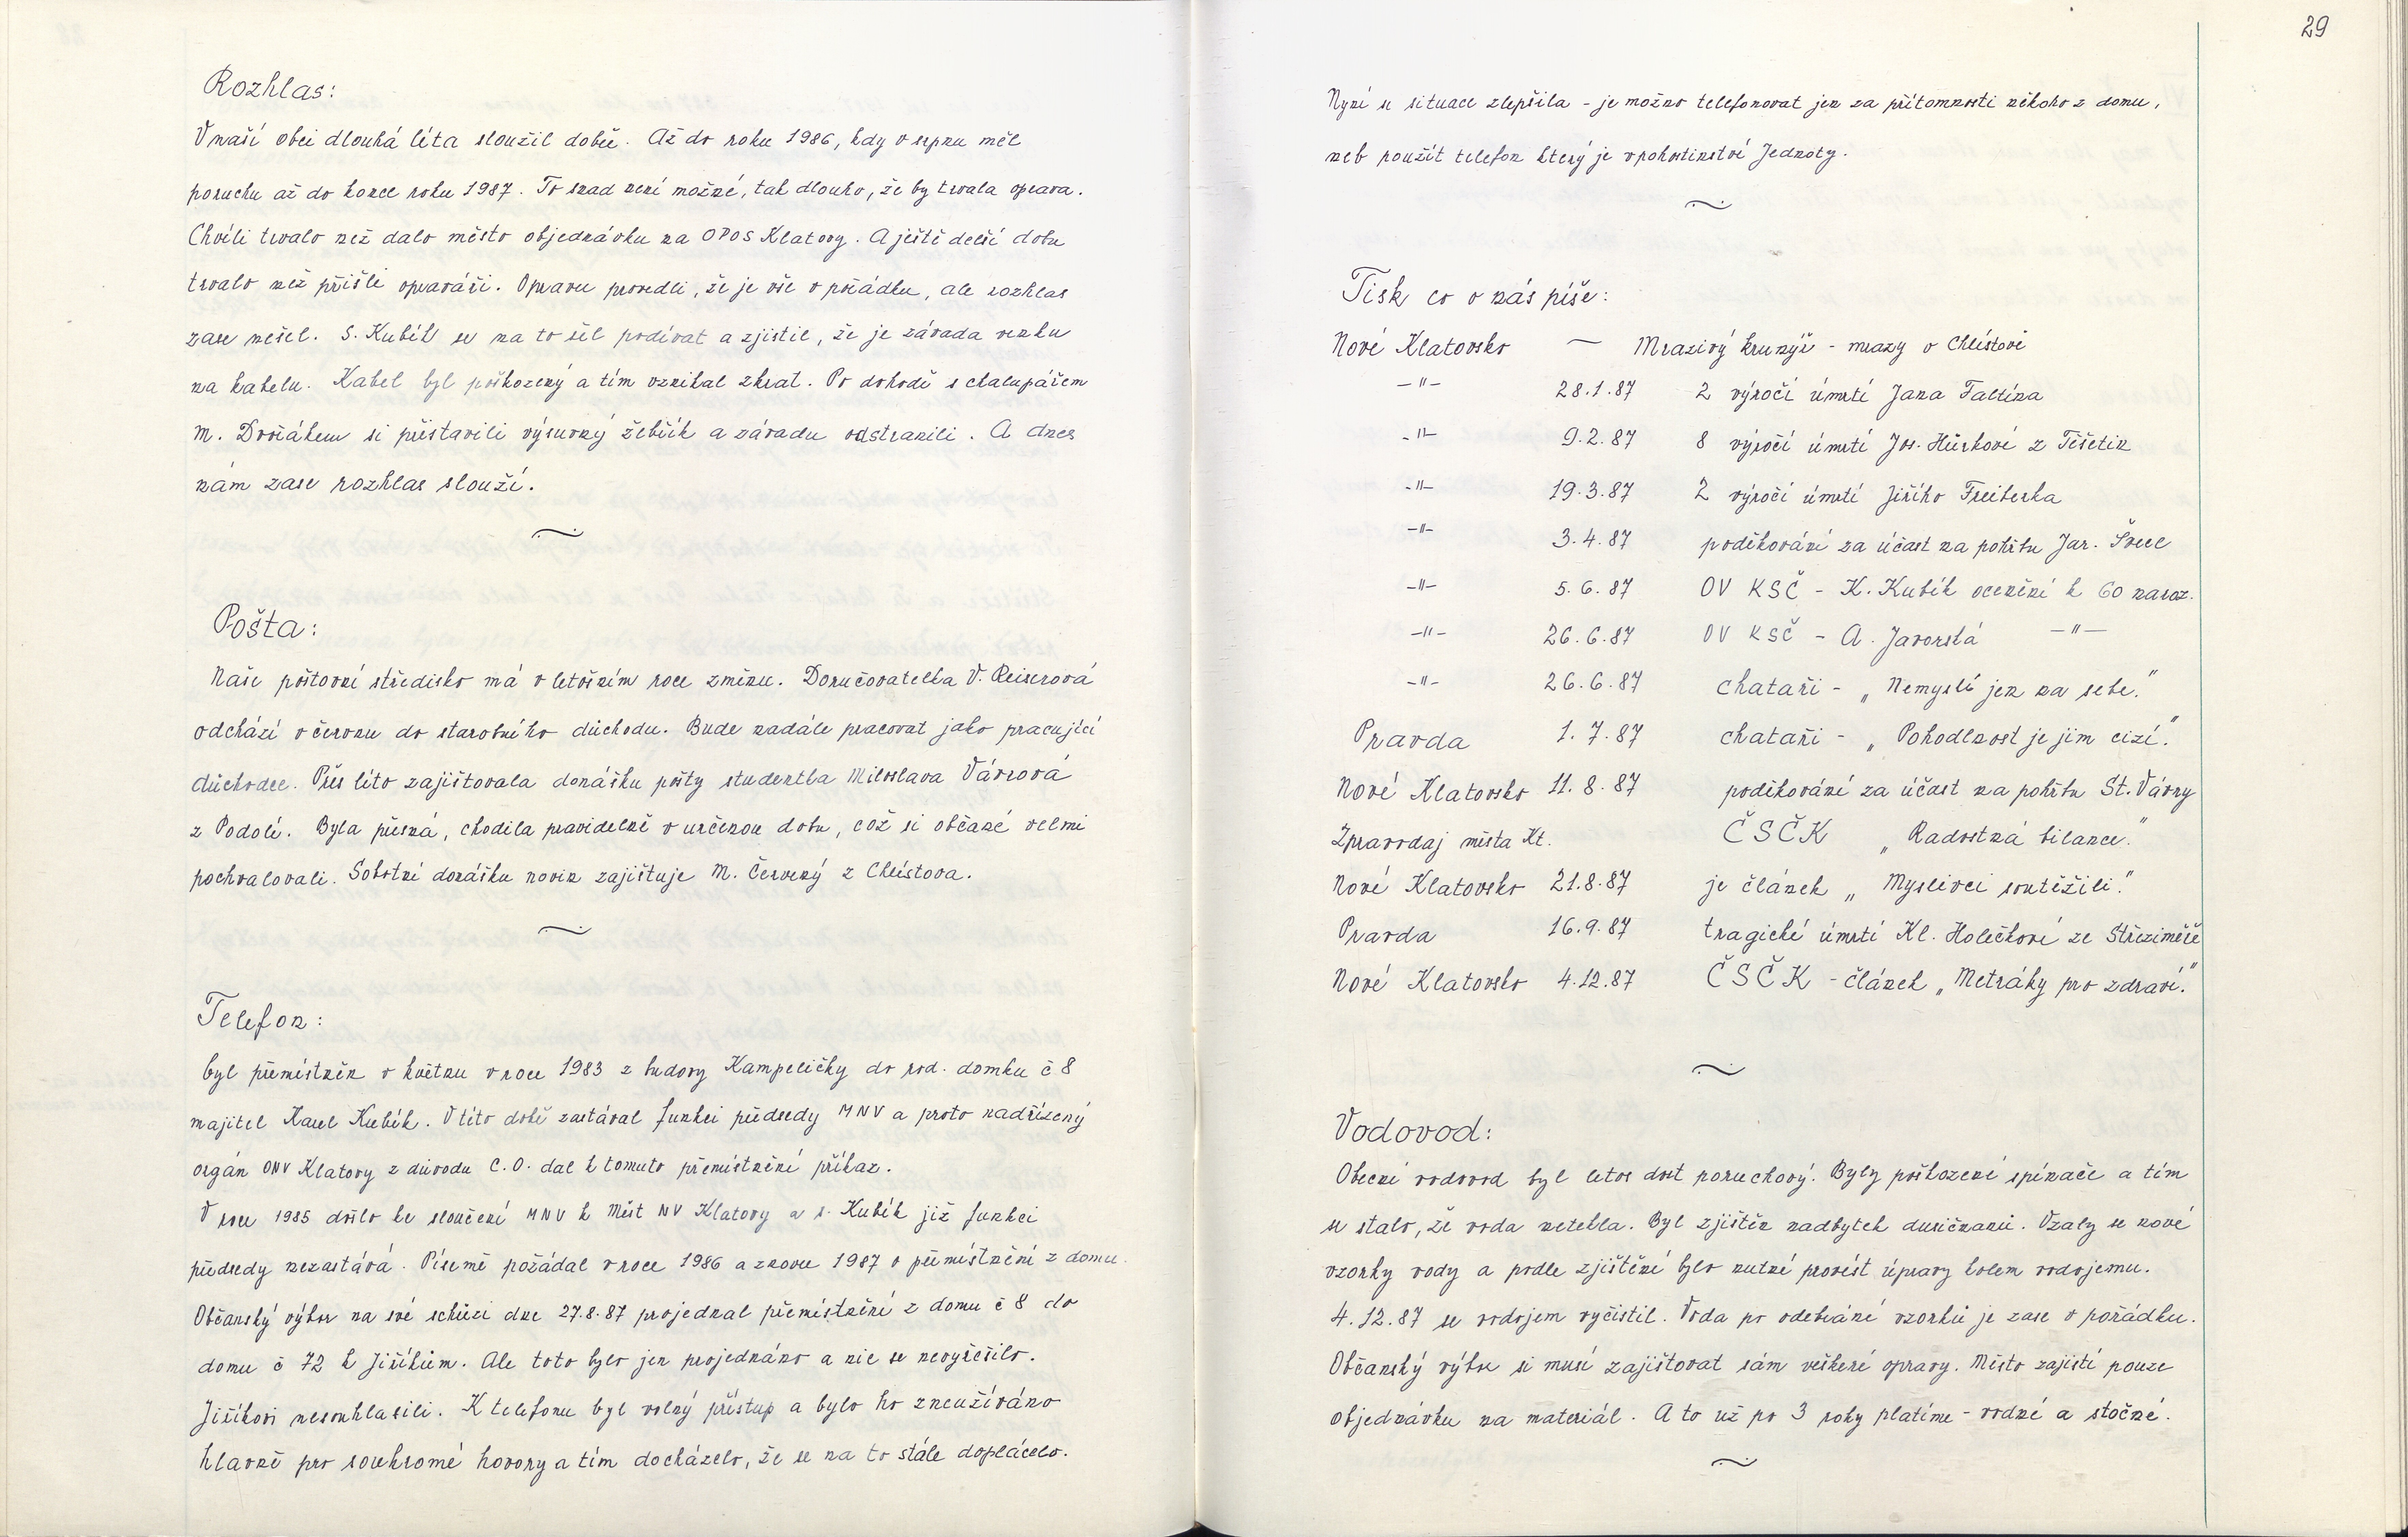 Rozhlas:
V naší obci dlouhá léta sloužil dobře. Až do roku 1986, kdy v srpnu měl
poruchu až do konce roku 1987. To snad není možné, tak dlouho, že by trvala oprava.
Chvíli trvalo než dalo město objednávku na OPOS Klatovy. A ještě delší dobu
trvalo než přišli opraváři. Opravu provedli, že je vše v pořádku, ale rozhlas
zase nešel. S. Kubík se na to šel podívat a zjistil, že je závada venku
na kabelu. Kabel byl poškozený a tím vznikal zkrat. Po dohodě s chalupářem
M. Dvořákem si přistavili výsuvný žebřík a závadu odstranili. A dnes
nám zase rozhlas slouží.
Pošta:
Naše poštovní středisko má v letošním roce změnu. Doručovatelka V. Reiserová
odchází v červnu do starobního důchodu. Bude nadále pracovat jako pracující
důchodce. Přes léto zajištovala donášku pošty studentka Miloslava Vávrová
z Podolí. Byla přesná, chodila pravidelně v určenou dobu, což si občané velmi
pochvalovali. Sobotní donášku novin zajištuje M. Červený z Chlístova.
Telefon:
byl přemístněn v květnu v roce 1983 z budovy Kampeličky do rod. domku č 8
majitel Karel Kubík. V této době zastával funkci předsedy MNV a proto nadřízený
orgán ONV Klatovy z důvodu C.O. dal k tomuto přemístnění příkaz.
V roce 1985 došlo ke sloučení MNV k Měst NV Klatovy a s. Kubík již funkci
předsedy nezastává. Písemě požádal v roce 1986 a znovu 1987 o přemístnění z domu.
Občanský výbor na své schůzi dne 27.8.87 projednal přemístnění z domu č 8 do
domu č 72 k Jiříkům. Ale toto bylo jen projednáno a nic se nevyřešilo.
Jiříkovi nesouhlasili. K telefonu byl volný přístup a bylo ho zneužíváno
hlavně pro soukromé hovory a tím docházelo, že se na to stále doplácelo.
29
Nyní se situace zlepšila - je možno telefonovat jen za přítomnosti někoho z domu,
neb použít telefon který je v pohostinství Jednoty.
Tisk co o nás píše:
Nové Klatovsko — Mrazivý krunýř - mrazy v Chlístově
-"- 28.1.87 2 výročí úmrtí Jana Faltína
-"- 9.2.87 8 výročí úmrtí Jos. Hůrkové z Těšetin
-"- 19.3.87 2 výročí úmrtí Jiřího Freiberka
-"- 3.4.87 poděkování za účast na pohřbu Jar. Švece
-"- 5.6.87 OV KSČ - K. Kubík ocenění k 60 naroz.
-"- 26.6.87 OV KSČ - A. Javorská -"-
-"- 26.6.87 chataři - „Nemyslí jen na sebe."
Pravda 1.7.87 chataři - „Pohodlnost je jim cizí."
Nové Klatovsko 11.8.87 poděkování za účast na pohřbu St. Vávry
Zpravodaj města Kt. ČSČK „Radostná bilance."
Nové Klatovsko 21.8.87 je článek „Myslivci soutěžili."
Pravda 16.9.87 tragické úmrtí Kl. Holečkové ze Střeziměře
Nové Klatovsko 4.12.87 ČSČK - článek „Metráky pro zdraví."
Vodovod:
Obecní vodovod byl letos dost poruchový. Byly poškozené spínače a tím
se stalo, že voda netekla. Byl zjištěn nadbytek dusičnanů. Vzaly se nové
vzorky vody a podle zjištění bylo nutné provést úpravy kolem vodojemu.
4.12.87 se vodojem vyčistil. Voda po odebrání vzorků je zase v pořádku.
Občanský výbor si musí zajištovat sám veškeré opravy. Město zajistí pouze
objednávku na materiál. A to už po 3 roky platíme - vodné a stočné.